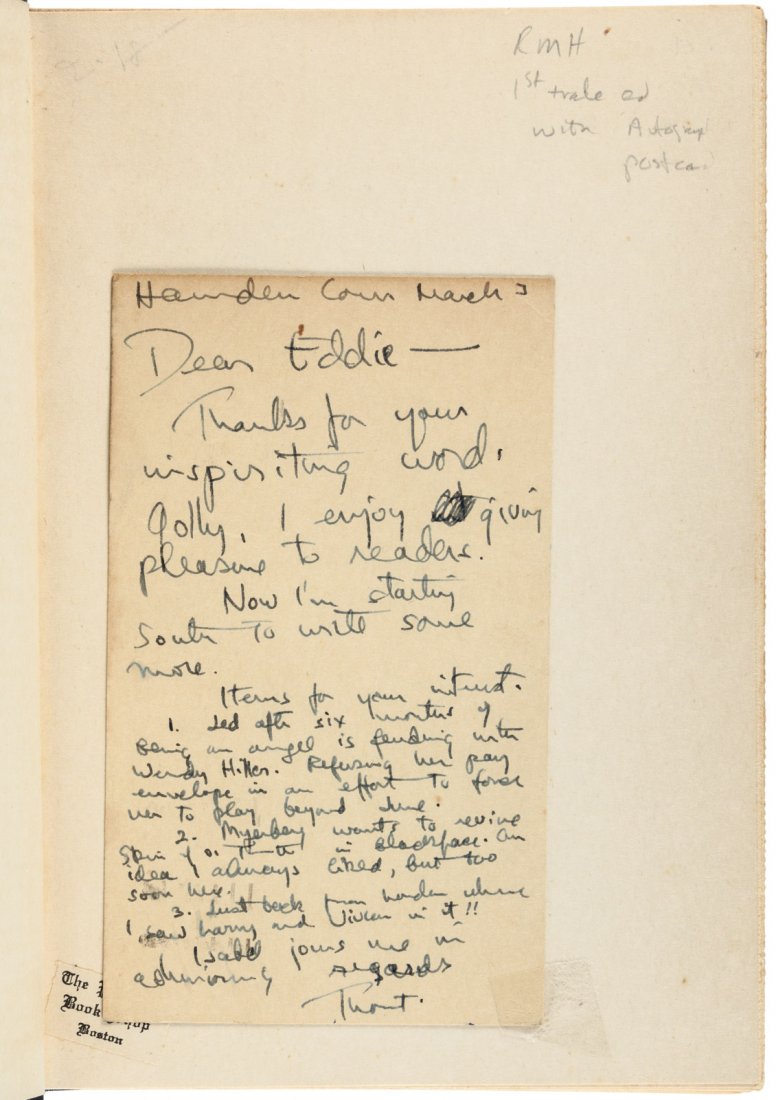 RMH
1st trade ed
with Autograph
postcard
Hamden Conn March 3
Dear Eddie —
Thanks for your
inspiriting word.
Golly, I enjoy giving
pleasure to readers.
Now I'm starting
South to write some
more.
Items for your interest.
1. Jed after six months of
being an angel is feuding with
Wendy Hiller. Refusing her pay
envelope in an effort to force
her to play beyond June.
2. Myerberg wants to revive
Skin of o. Teeth in Blackface. An
idea I always liked, but too
soon here.
3. Just back from London where
I saw Larry and Vivien in it!!
Isabel joins me in
admiring regards
Thornt.
The
Book Shop
Boston